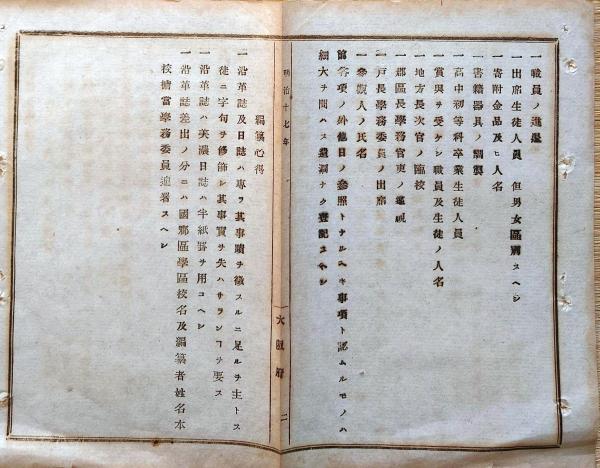 一職員ノ進退
一出席生徒人員 但男女區別スヘシ
一寄附金品及ヒ人名
一書籍器具ノ調製
一高中初等科卒業生徒人員
一賞與ヲ受ケシ職員及生徒ノ人名
一地方長次官ノ臨校
一郡區長學務官吏ノ巡視
一戸長學務委員ノ出席
一參觀人ノ氏名
前各項ノ外他日ノ參照トナルヘキ事項ト認ムルモノハ
細大ヲ問ハス遺漏ナク登記スヘシ
明治十七年
大阪府 二
編纂心得
一沿革誌及日誌ハ專ラ其事蹟ヲ徴スルニ足ルヲ主トス
徒ニ字句ヲ修飾シ其事實ヲ失ハサランヿヲ要ス
一沿革誌ハ美濃日誌ハ半紙罫ヲ用ユヘシ
一沿革誌差出ノ分ニハ國郡區學區校名及編纂者姓名本
校擔當學務委員連署スヘシ